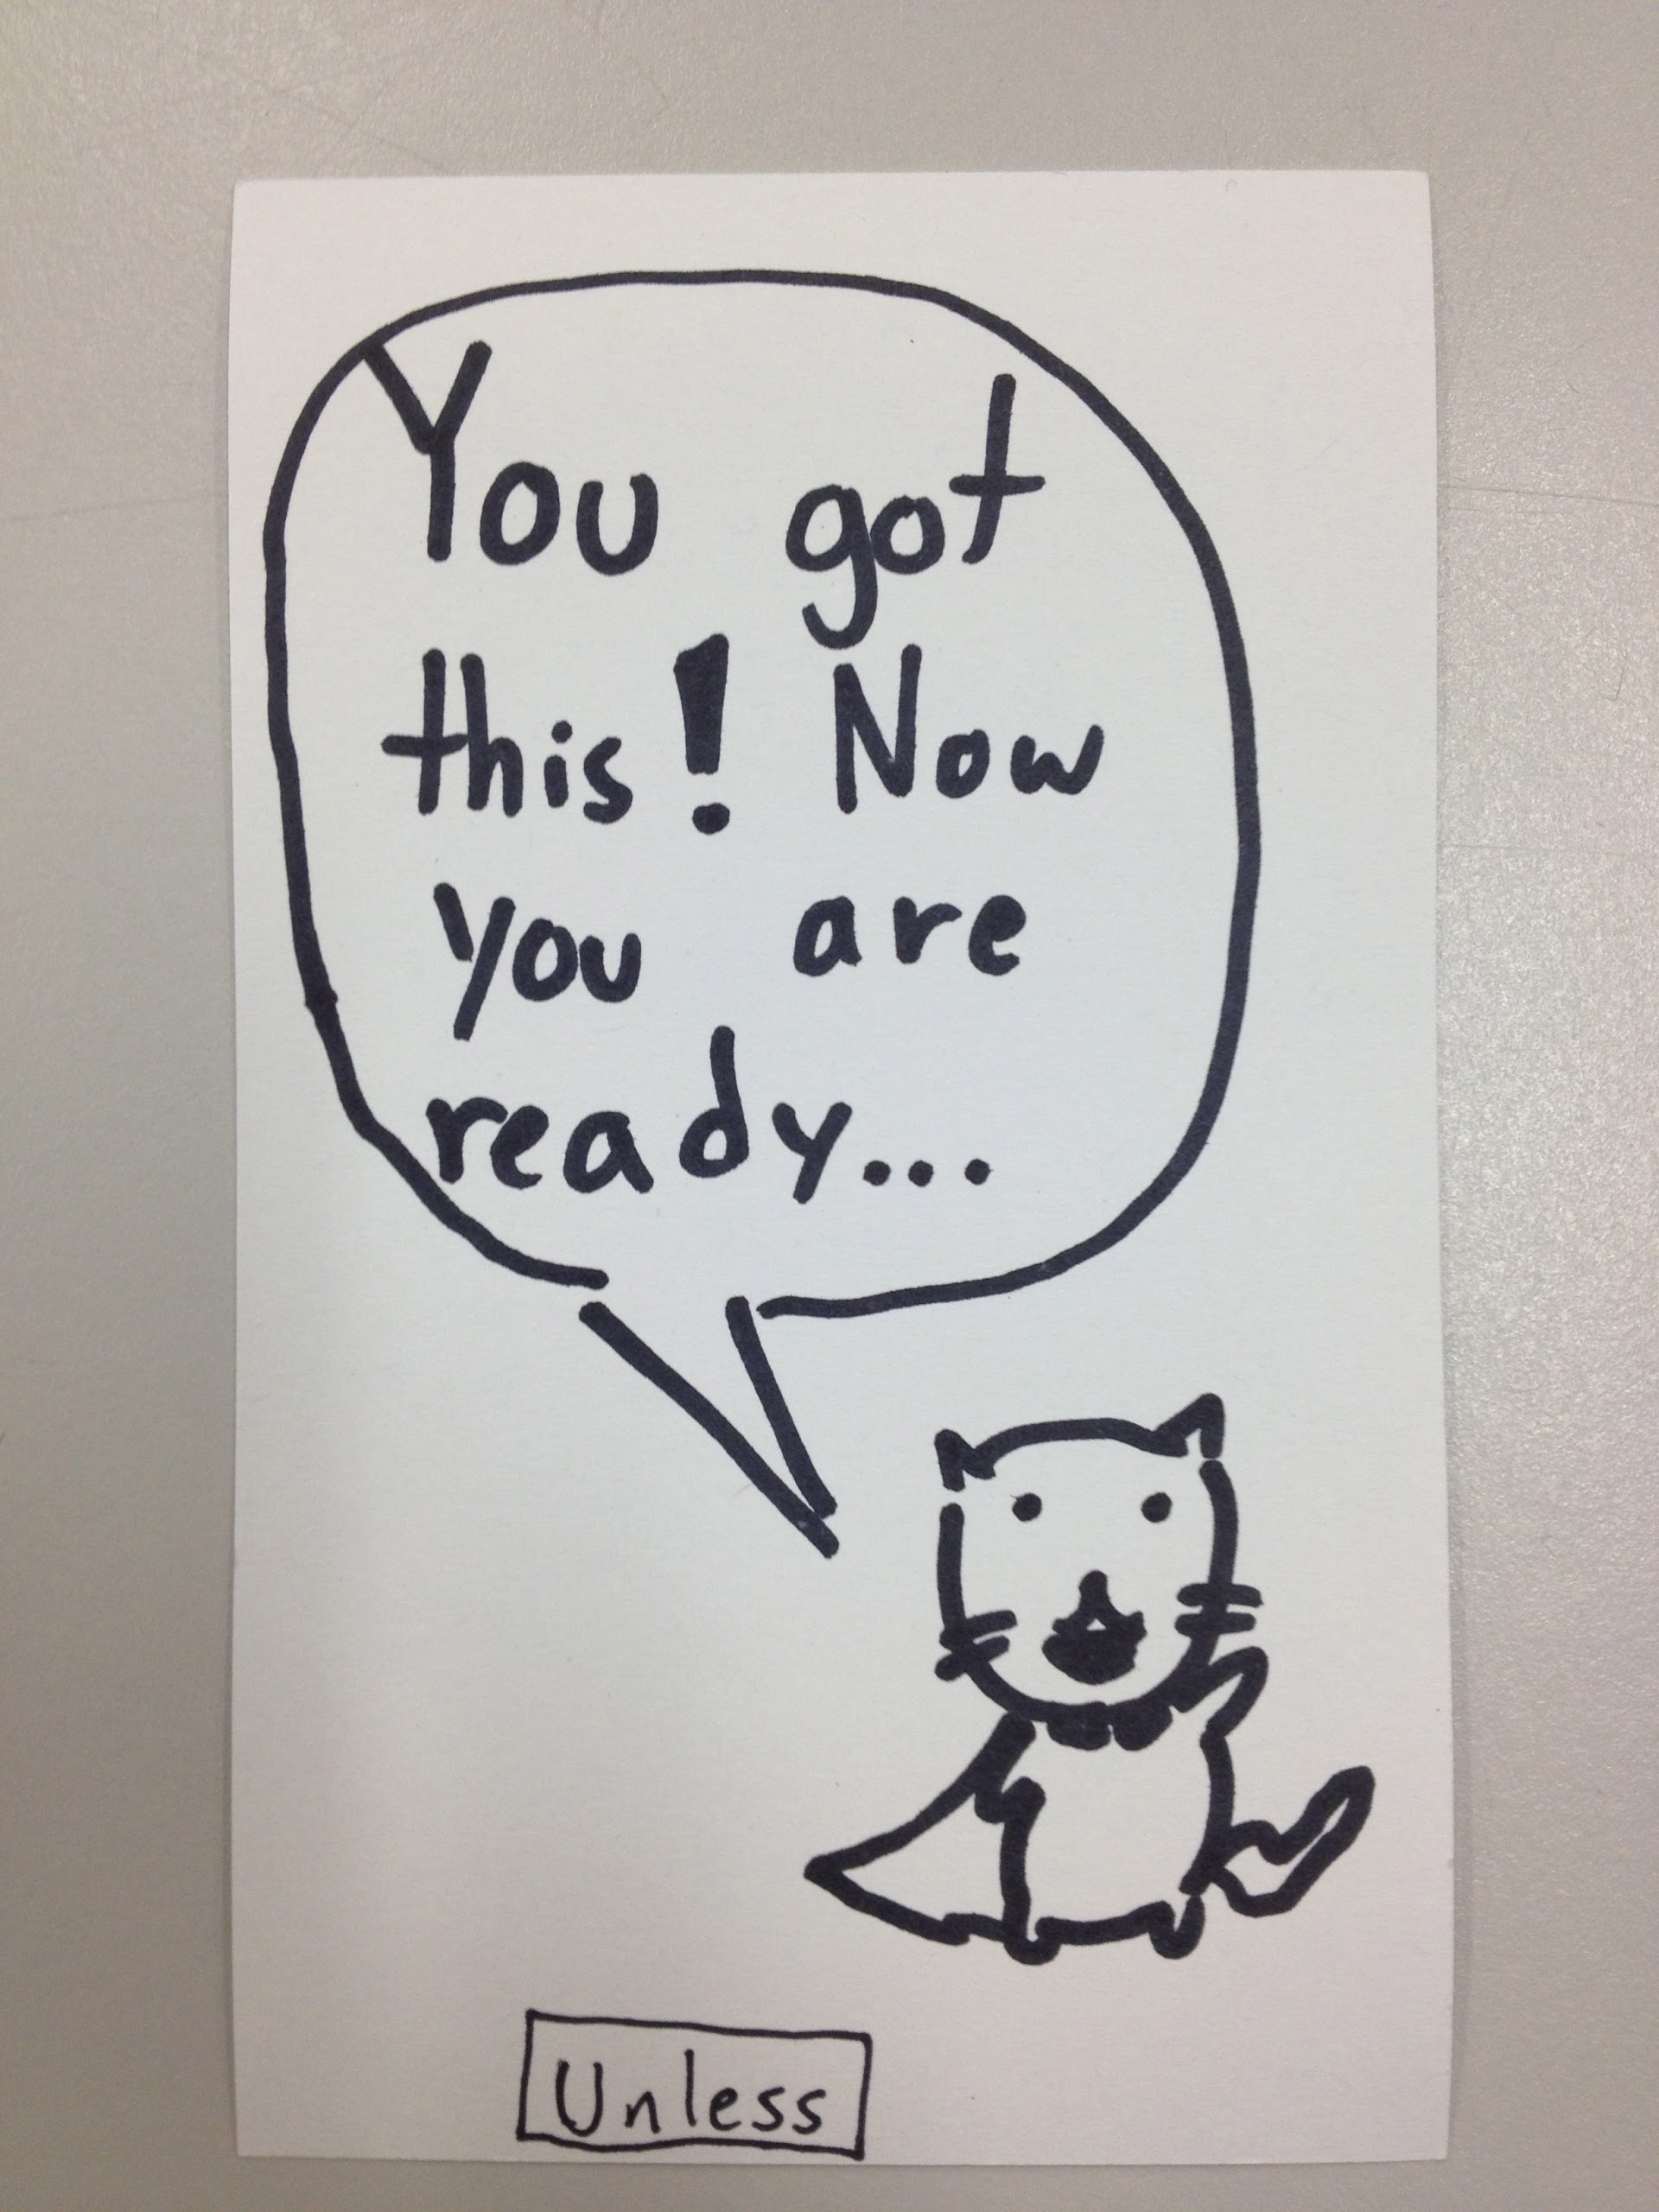 You got
this! Now
you are
ready...
Unless